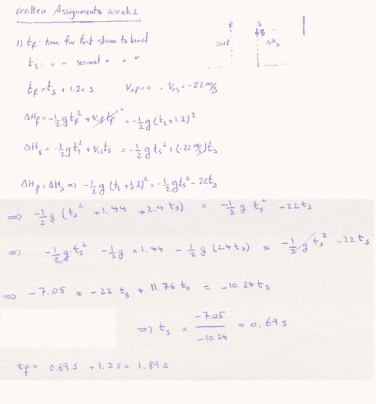 Written Assignments week 2
F S
ΔHf ΔHs
1) tf: time for first stone to land
ts: " " second " " "
tf = ts + 1.20 s Vof = 0 , Vos = -22 m/s
ΔHf = -1/2 g tf² + Vof tf = -1/2 g (ts+1.2)²
ΔHs = -1/2 g ts² + Vos ts = -1/2 g ts² + (-22 m/s) ts
ΔHf = ΔHs => -1/2 g (ts+1.2)² = -1/2 g ts² - 22 ts
=> -1/2 g (ts² + 1.44 + 2.4 ts) = -1/2 g ts² - 22 ts
=> -1/2 g ts² - 1/2 g × 1.44 - 1/2 g (2.4 ts) = -1/2 g ts² - 22 ts
=> -7.05 = -22 ts + 11.76 ts = -10.24 ts
=> ts = -7.05 / -10.24 = 0.69 s
tf = 0.69 s + 1.2 s = 1.89 s